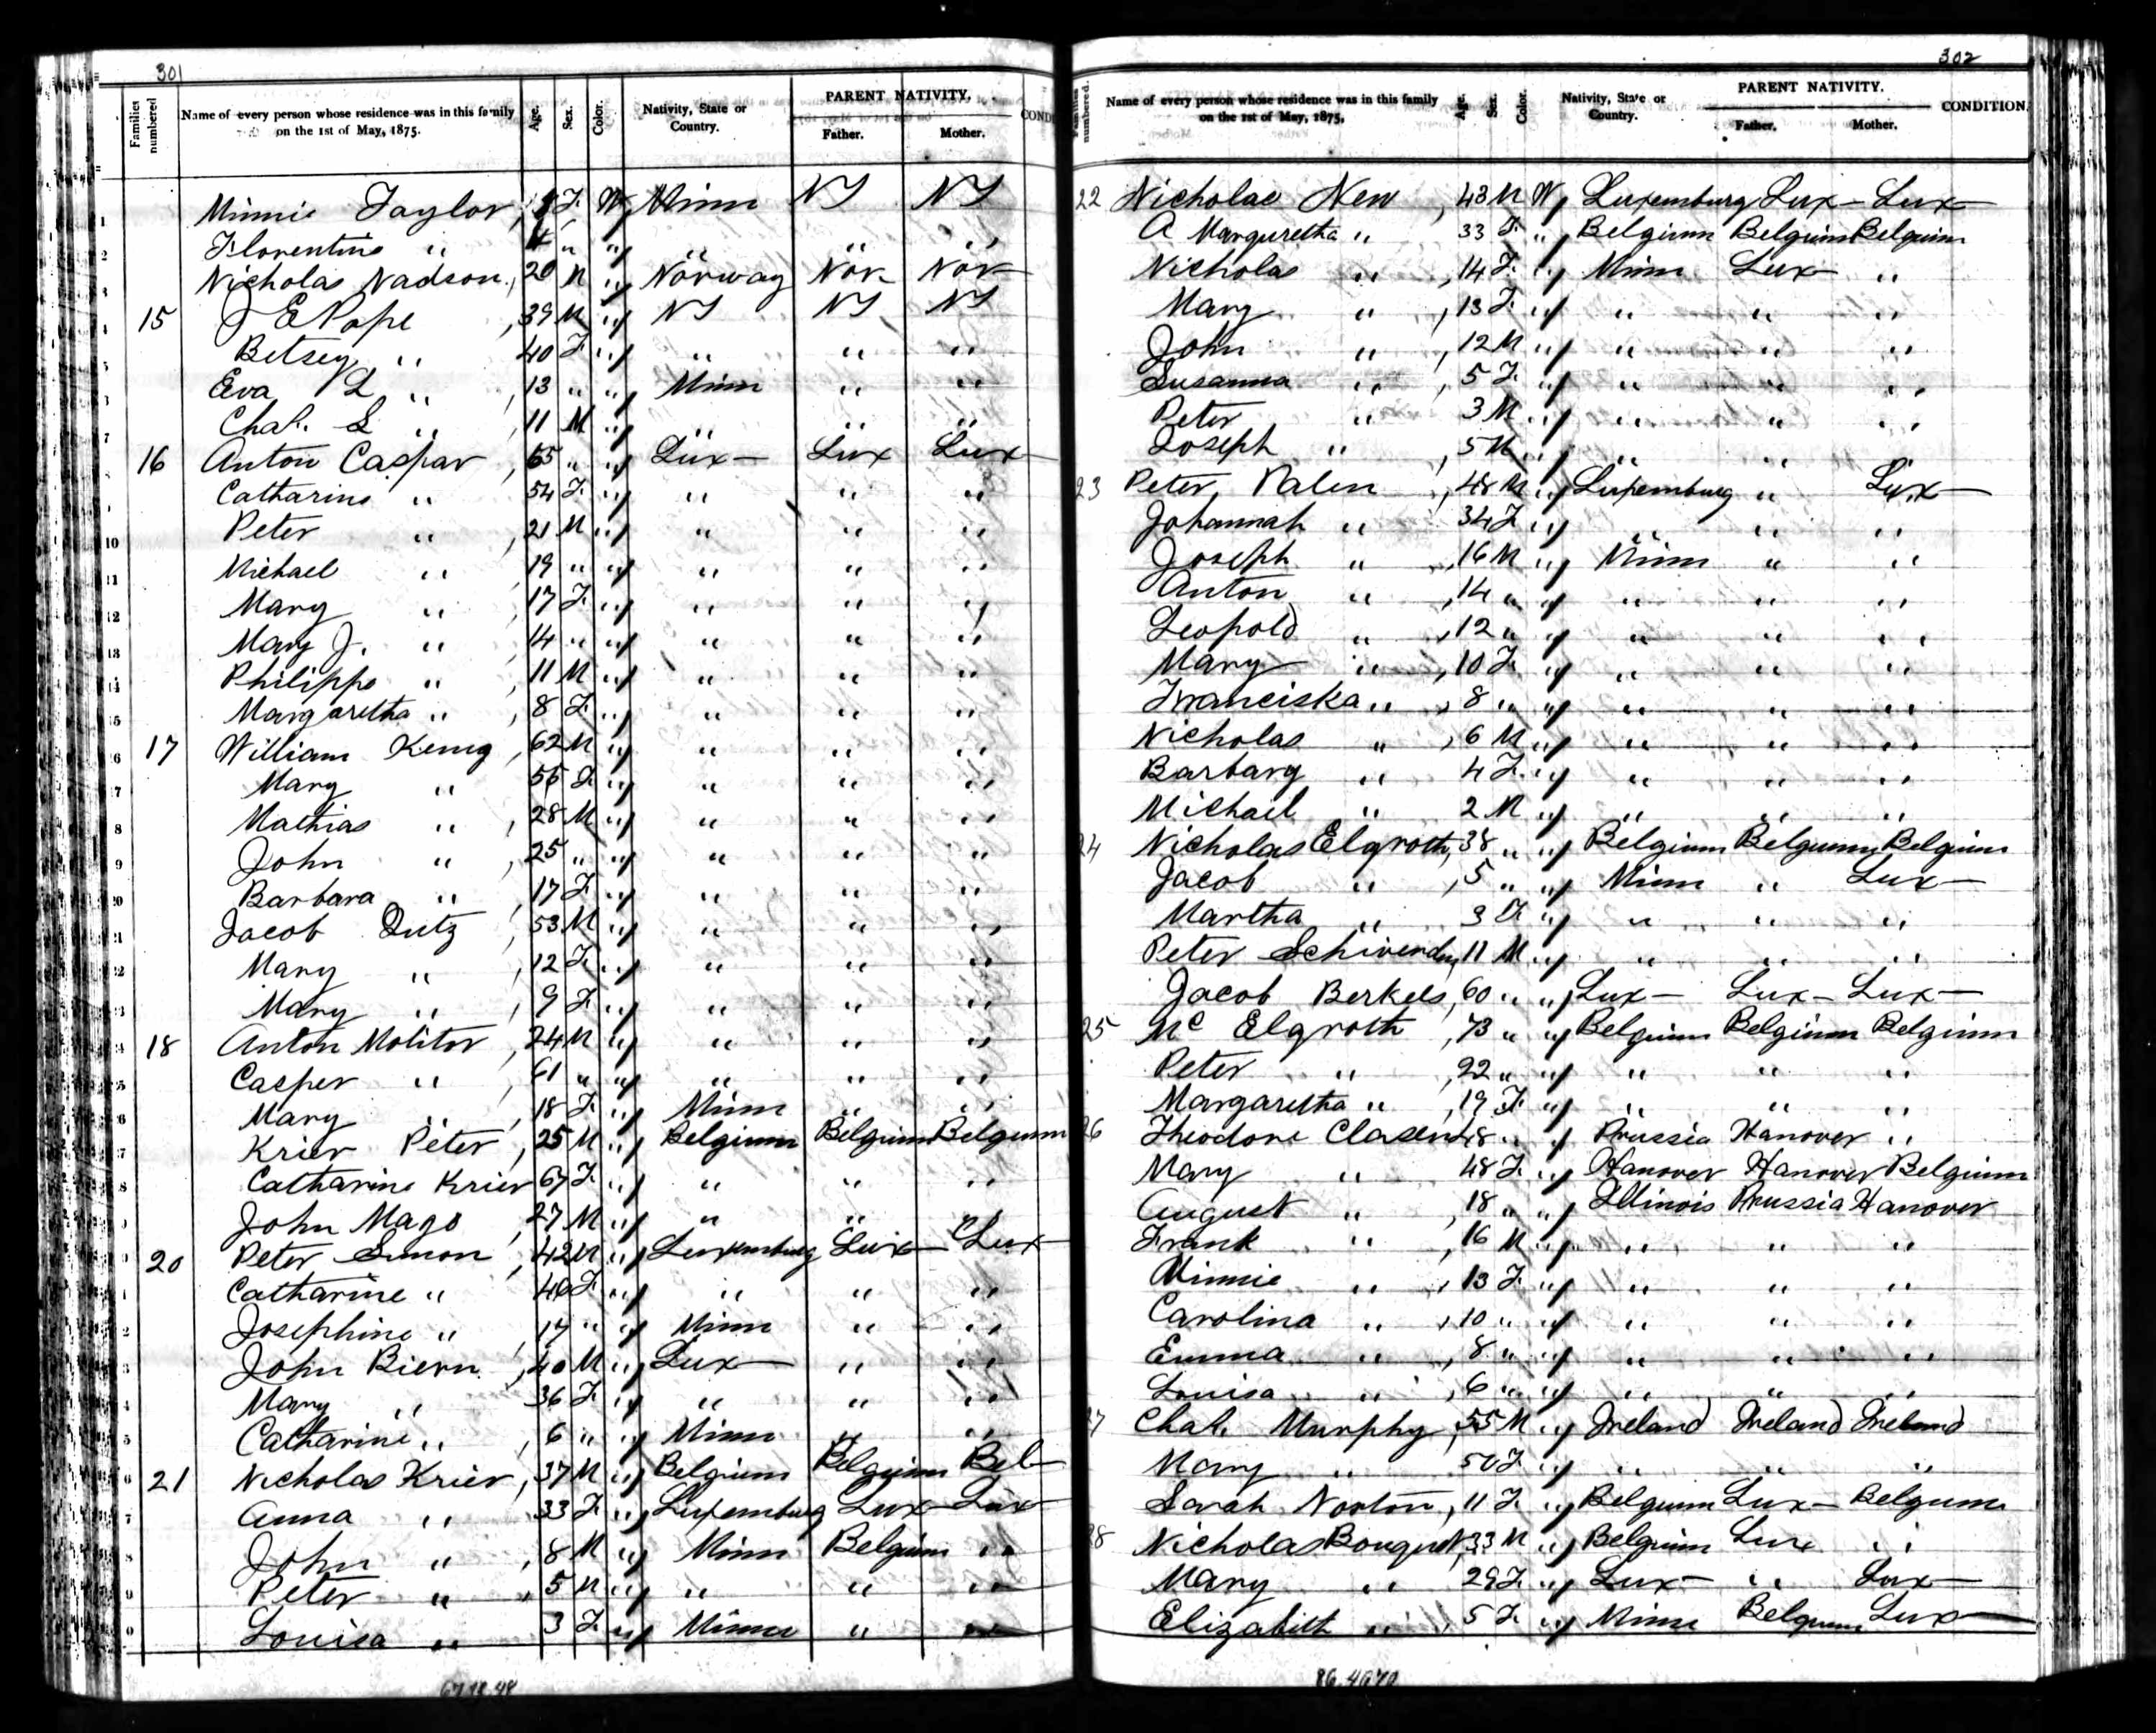 301
Families numbered
Name of every person whose residence was in this family on the 1st of May, 1875.
Age. Sex. Color. Nativity, State or Country. PARENT NATIVITY. Father. Mother. COND
1 Minnie Taylor, F. W Minn NY NY
2 Florentine " " " " " "
3 Nicholas Nadson, 20 M " Norway Nor Nor
15 J E Pope, 39 M " NY NY NY
5 Betsey " 40 F. " " " "
Eva L " 13 " " Minn " "
7 Chas. S " 11 M " " " "
16 Anton Caspar, 65 " " Lux— Lux Lux
Catharine " 54 F. " " " "
10 Peter " 21 M " " " "
11 Michael " 19 " " " " "
12 Mary " 17 F. " " " "
13 Mary J. " 14 " " " " "
14 Philippe " 11 M " " " "
5 Margaretha " 8 F. " " " "
6 17 William Kemg, 62 M " " " "
7 Mary " 55 F. " " " "
8 Mathias " 28 M " " " "
9 John " 25 " " " " "
20 Barbara " 17 F. " " " "
21 Jacob Lutz, 53 M " " " "
Mary " 12 F. " " " "
Mary " 9 F. " " " "
18 Anton Molitor, 24 M " " " "
5 Casper " 61 " " " " "
6 Mary " 18 F. " Minn " "
7 Krier Peter, 25 M " Belgium Belgium Belgium
8 Catharine Krier 67 F. " " " "
John Mago 27 M " " " "
20 Peter Simon, 42 M " Luxemburg Lux— Lux
Catharine " 46 F. " " " "
2 Josephine " 17 " " Minn " "
John Biern, 40 M " Lux— " "
Mary " 36 F. " " " "
5 Catharine " 6 " " Minn " "
6 21 Nicholas Krier, 37 M " Belgium Belgium Bel—
7 Anna " 33 F. " Luxemburg Lux Lux
8 John " 8 M " Minn Belgium "
9 Peter " 5 M " " " "
Louisa " 3 F. " Minn " "
302
numbered.
Name of every person whose residence was in this family on the 1st of May, 1875.
Age. Sex. Color. Nativity, State or Country. PARENT NATIVITY. Father. Mother. CONDITION.
22 Nicholae New, 43 M W Luxemburg Lux— Lux
A Marguretha " 33 F. " Belgium Belgium Belguim
Nicholas " 14 F. " Minn Lux— "
Mary " 13 F. " " " "
John " 12 M " " " "
Susanna " 5 F. " " " "
Peter " 3 M " " " "
Joseph " 5 M " " " "
23 Peter Palen, 48 M " Luxemburg " Lux—
Johannah " 34 F. " " " "
Joseph " 16 M " Minn " "
Anton " 14 " " " " "
Leopold " 12 " " " " "
Mary " 10 F. " " " "
Franciska " 8 " " " " "
Nicholas " 6 M " " " "
Barbary " 4 F. " " " "
Michael " 2 M " " " "
24 Nicholas Elgroth, 38 " " Belgium Belgium Belgium
Jacob " 5 " " Minn " Lux—
Martha " 3 F. " " " "
Peter 11 M " " " "
Jacob Berkels, 60 " " Lux— Lux— Lux—
25 Mc Elgroth, 73 " " Belgium Belgium Belgium
Peter " 22 " " " " "
Margaretha " 19 F. " " " "
26 Theodore Clasen 48 " " Prussia Hanover "
Mary " 48 F. " Hanover Hanover Belgium
August " 18 " " Illinois Prussia Hanover
Frank " 16 M " " " "
Minnie " 13 F. " " " "
Carolina " 10 " " " " "
Emma " 8 " " " " "
Louisa " 6 " " " " "
27 Chas. Murphy, 55 M " Ireland Ireland Ireland
Mary " 50 F. " " " "
Sarah Norton, 11 F. " Belgium Lux— Belgium
28 Nicholas Bouquet, 33 M " Belgium Lux "
Mary " 29 F. " Lux— " Lux—
Elizabith " 5 F. " Minn Belgium Lux